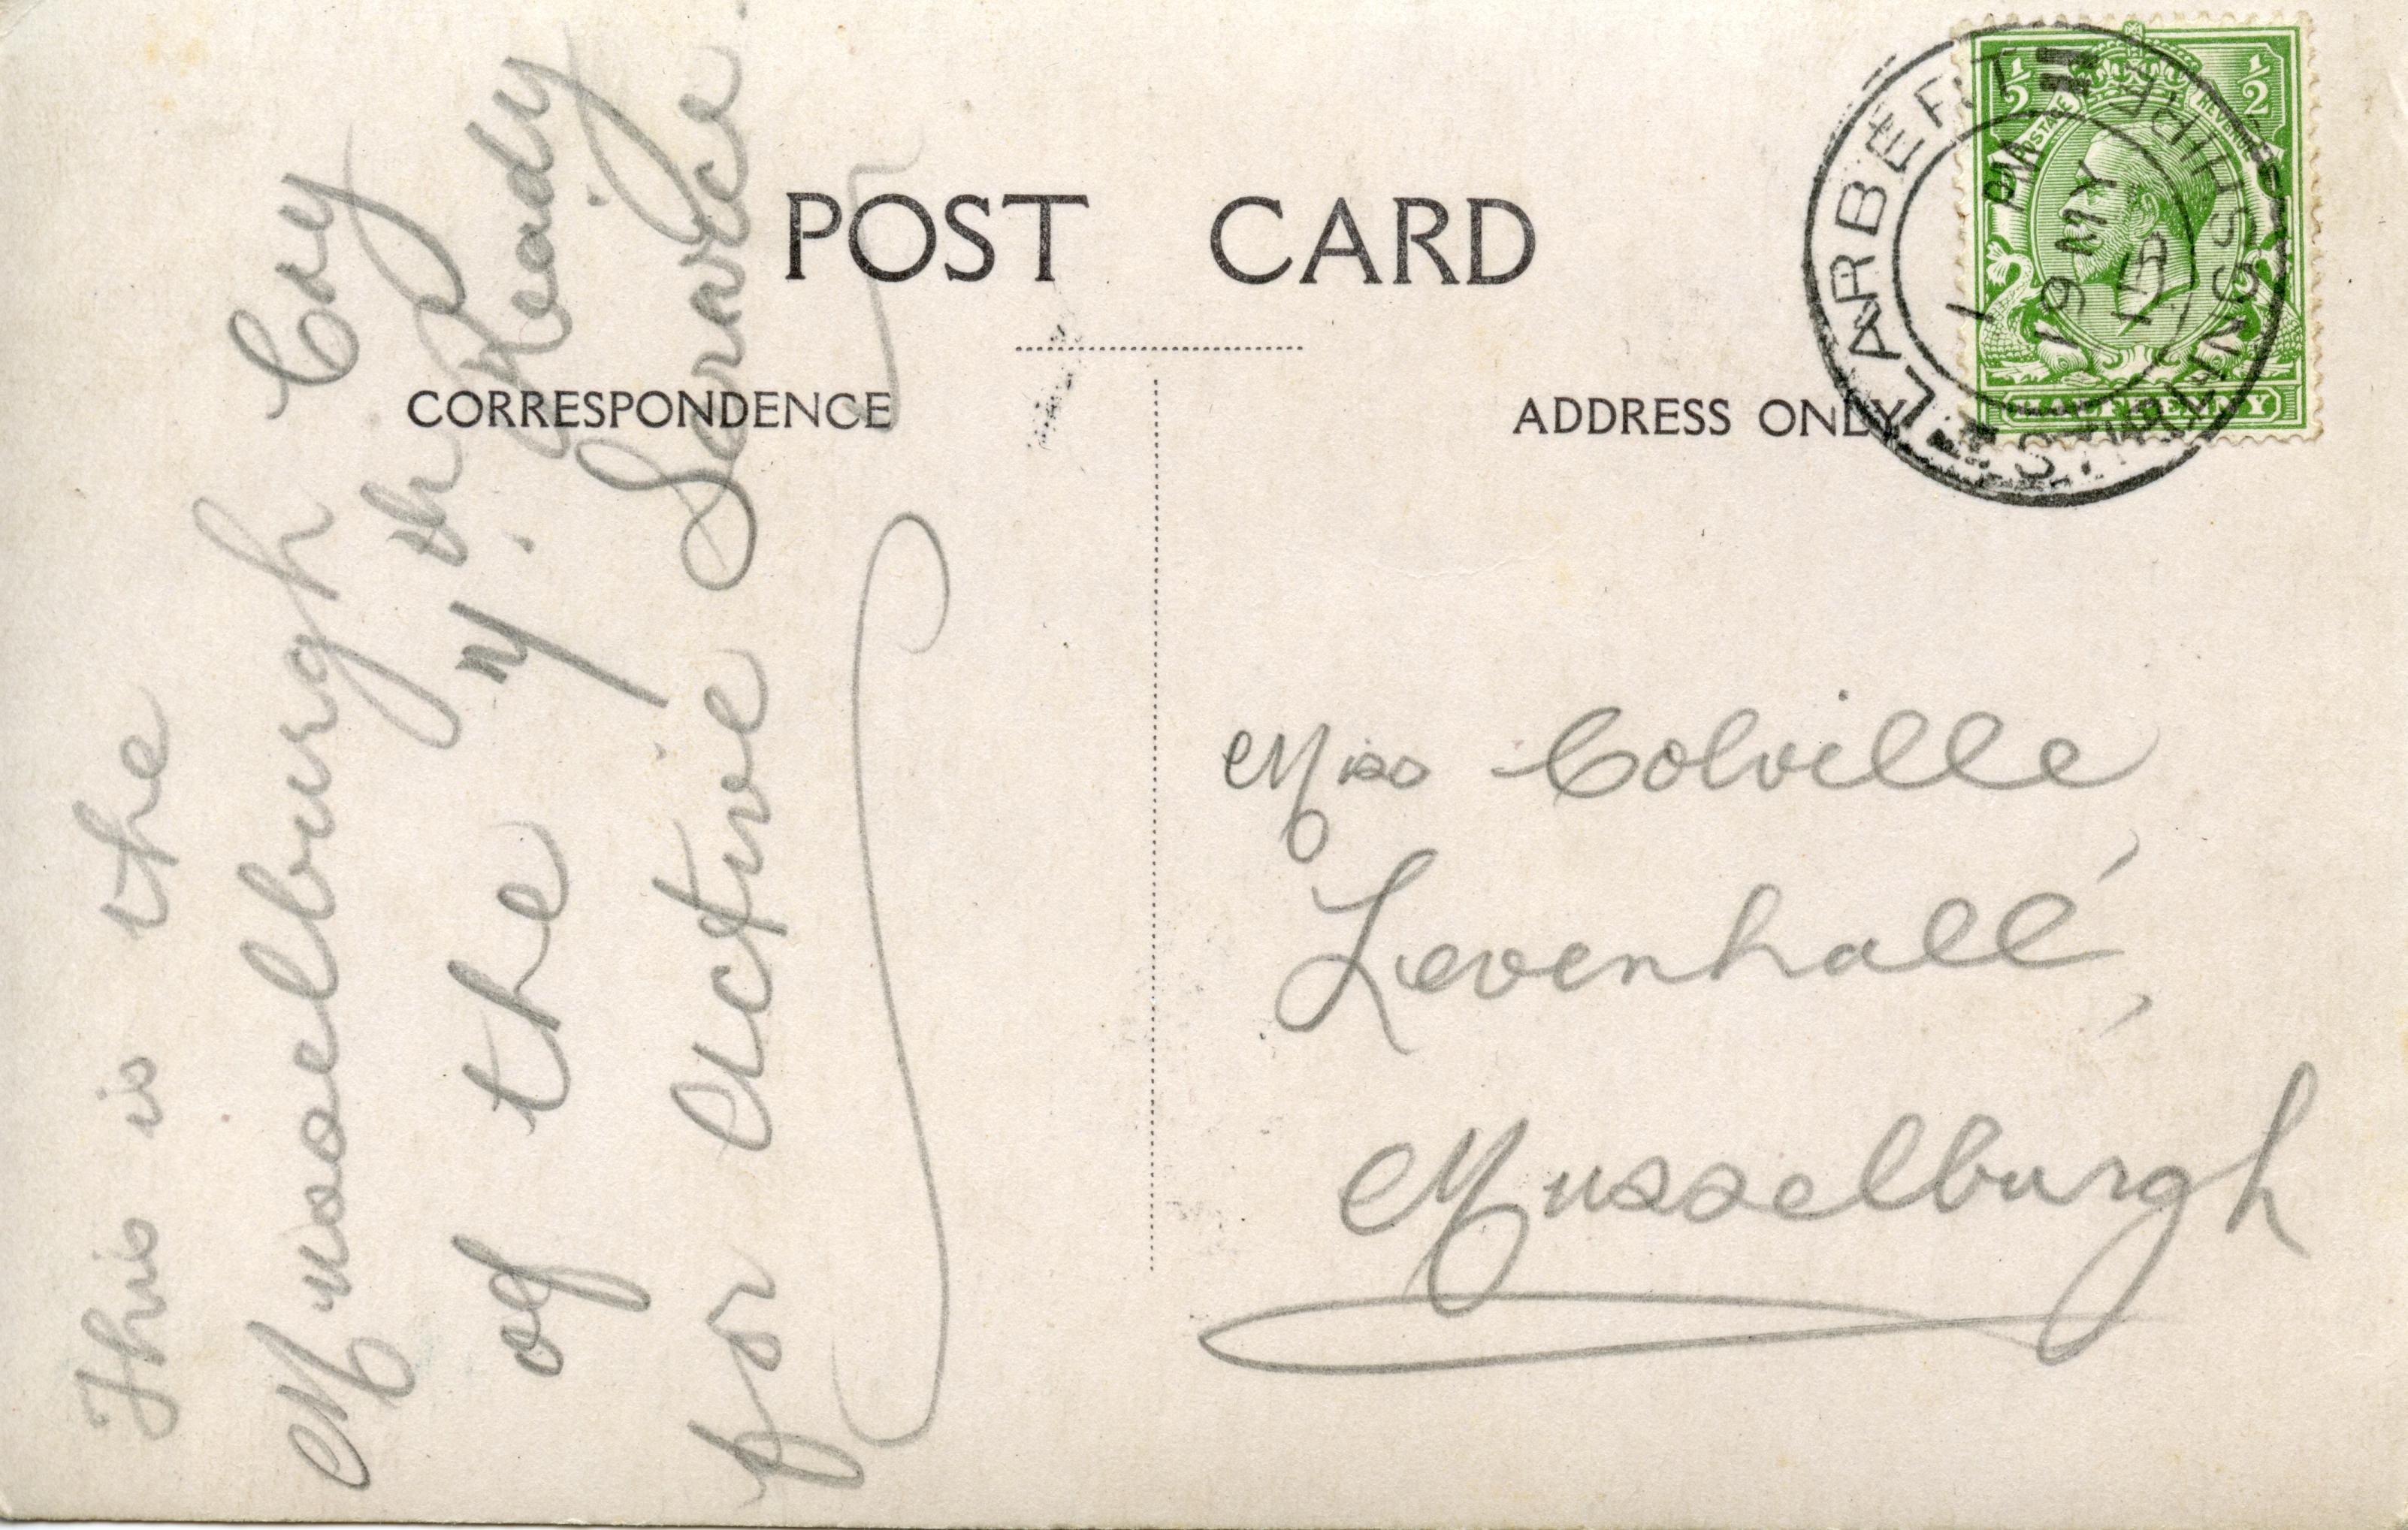 POST CARD
CORRESPONDENCE
ADDRESS ONLY
LARBERT
STIRLINGSHIRE
1 PM
19 MY
15
½ ½
POSTAGE REVENUE
HALFPENNY
This is the
Musselburgh Coy
of the
Ready
for Active Service
Miss Colville
Levenhall,
Musselburgh